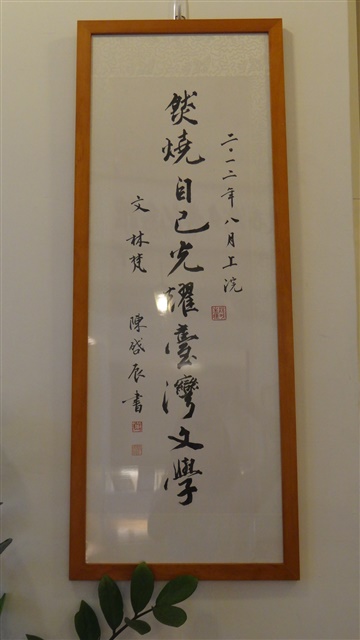 二〇一二年八月上浣
燄燒自己光耀臺灣文學
文 林梵 陳啓辰 書